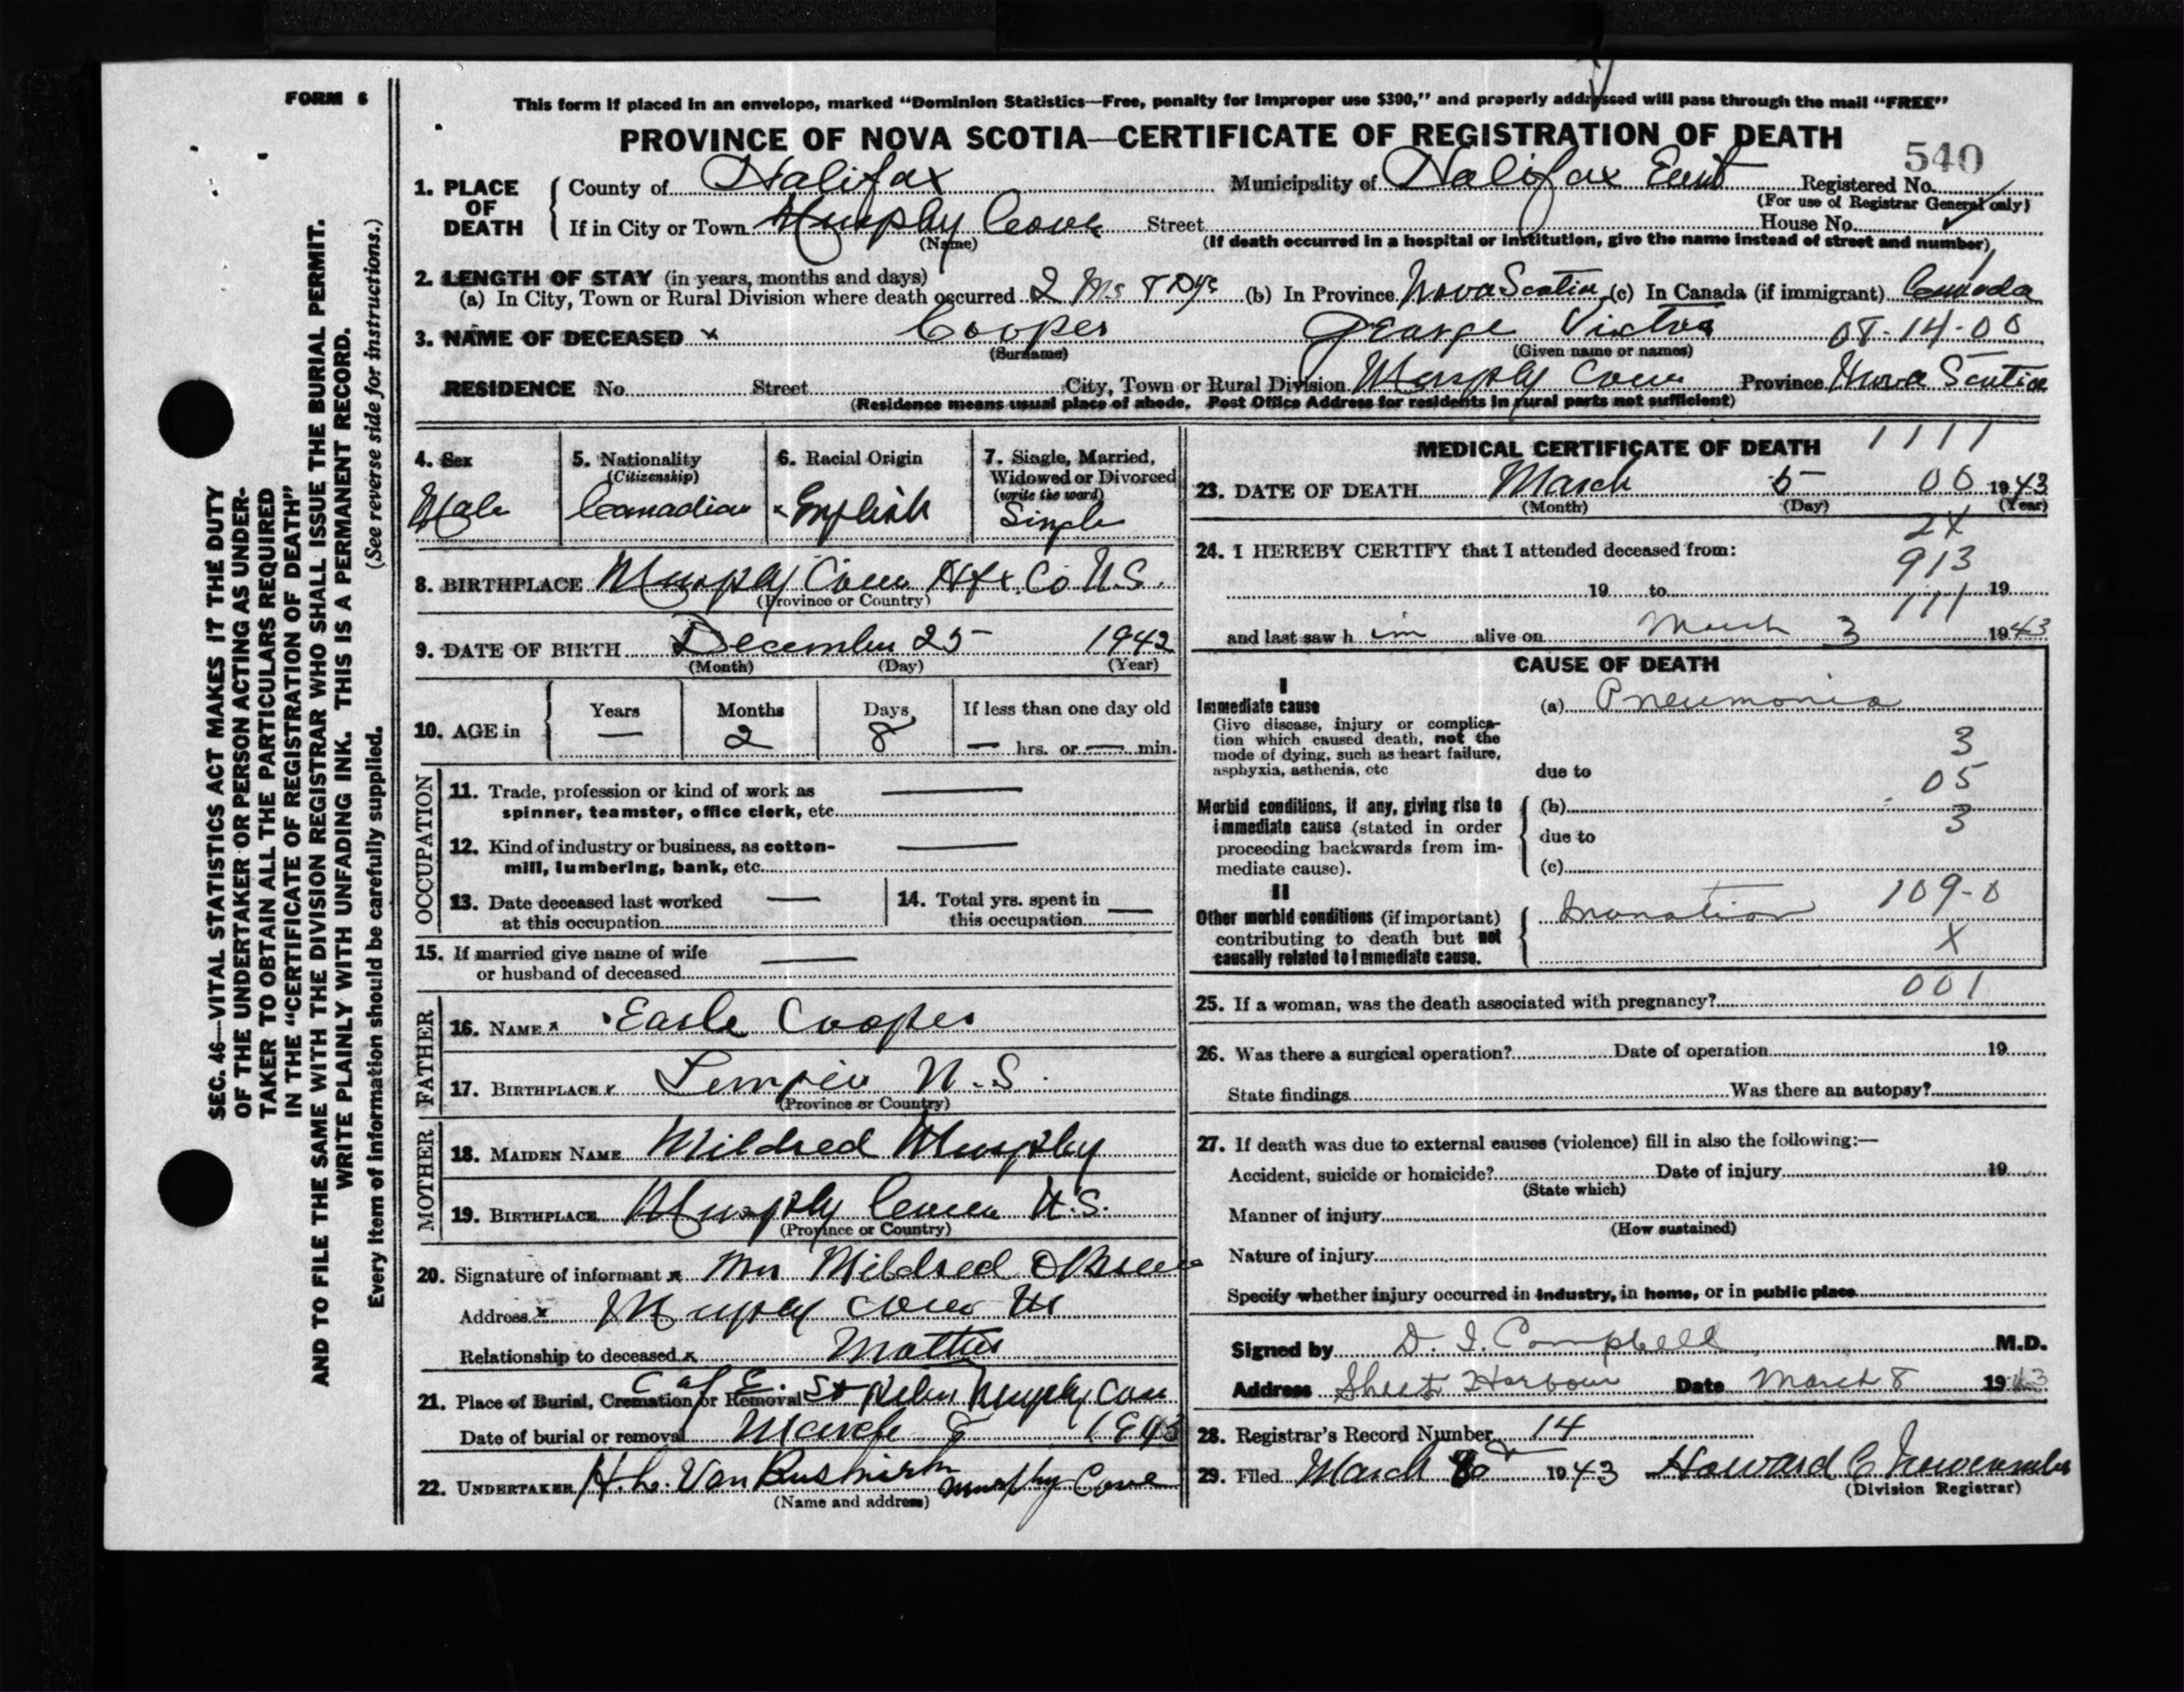 FORM 6
This form if placed in an envelope, marked "Dominion Statistics—Free, penalty for improper use $300," and properly addressed will pass through the mail "FREE"
PROVINCE OF NOVA SCOTIA—CERTIFICATE OF REGISTRATION OF DEATH
540
1. PLACE OF DEATH
County of Halifax Municipality of Halifax East Registered No.
(For use of Registrar General only)
If in City or Town Murphy Cove Street House No.
(Name) (If death occurred in a hospital or institution, give the name instead of street and number)
2. LENGTH OF STAY (in years, months and days)
(a) In City, Town or Rural Division where death occurred 2 Ms 8 Dys (b) In Province Nova Scotia (c) In Canada (if immigrant) Canada
3. NAME OF DECEASED x Cooper George Victor 08-14-00
(Surname) (Given name or names)
RESIDENCE No. Street City, Town or Rural Division Murphy Cove Province Nova Scotia
(Residence means usual place of abode. Post Office Address for residents in rural parts not sufficient)
4. Sex
Male
5. Nationality
(Citizenship)
Canadian
6. Racial Origin
x English
7. Single, Married, Widowed or Divorced
(write the word)
Single
8. BIRTHPLACE Murphy Cove Hfx. Co N.S.
(Province or Country)
9. DATE OF BIRTH December 25 1942
(Month) (Day) (Year)
10. AGE in
Years Months Days If less than one day old
— 2 8 — hrs. or — min.
OCCUPATION
11. Trade, profession or kind of work as
spinner, teamster, office clerk, etc. —
12. Kind of industry or business, as cotton-
mill, lumbering, bank, etc. —
13. Date deceased last worked
at this occupation —
14. Total yrs. spent in
this occupation —
15. If married give name of wife
or husband of deceased —
FATHER
16. NAME x Earle Cooper
17. BIRTHPLACE x N.S.
(Province or Country)
MOTHER
18. MAIDEN NAME Mildred Murphy
19. BIRTHPLACE Murphy Cove N.S.
(Province or Country)
20. Signature of informant x Mrs Mildred
Address x Murphy Cove NS
Relationship to deceased x Mother
21. Place of Burial, Cremation or Removal C of E. St Murphy Cove
Date of burial or removal March 8 1943
22. UNDERTAKER H. L. Van Buskirk Murphy Cove
(Name and address)
MEDICAL CERTIFICATE OF DEATH 1111
23. DATE OF DEATH March 5 00 1943
(Month) (Day) (Year)
2X
24. I HEREBY CERTIFY that I attended deceased from:
913
19 to 19
111
and last saw h im alive on March 3 1943
CAUSE OF DEATH
I
Immediate cause
Give disease, injury or complica-
tion which caused death, not the
mode of dying, such as heart failure,
asphyxia, asthenia, etc
(a) Pneumonia
3
due to
05
Morbid conditions, if any, giving rise to
immediate cause (stated in order
proceeding backwards from im-
mediate cause).
(b)
3
due to
(c)
II
Other morbid conditions (if important)
contributing to death but not
causally related to immediate cause.
Inanation 109-0
X
001
25. If a woman, was the death associated with pregnancy?
26. Was there a surgical operation? Date of operation 19
State findings Was there an autopsy?
27. If death was due to external causes (violence) fill in also the following:—
Accident, suicide or homicide? Date of injury 19
(State which)
Manner of injury
(How sustained)
Nature of injury
Specify whether injury occurred in industry, in home, or in public place
Signed by D. I. Campbell M.D.
Address Sheet Harbour Date March 8 1943
28. Registrar's Record Number 14
29. Filed March 1943 Howard C Newcombe
(Division Registrar)
SEC. 46—VITAL STATISTICS ACT MAKES IT THE DUTY
OF THE UNDERTAKER OR PERSON ACTING AS UNDER-
TAKER TO OBTAIN ALL THE PARTICULARS REQUIRED
IN THE "CERTIFICATE OF REGISTRATION OF DEATH"
AND TO FILE THE SAME WITH THE DIVISION REGISTRAR WHO SHALL ISSUE THE BURIAL PERMIT.
WRITE PLAINLY WITH UNFADING INK. THIS IS A PERMANENT RECORD.
Every item of information should be carefully supplied. (See reverse side for instructions.)